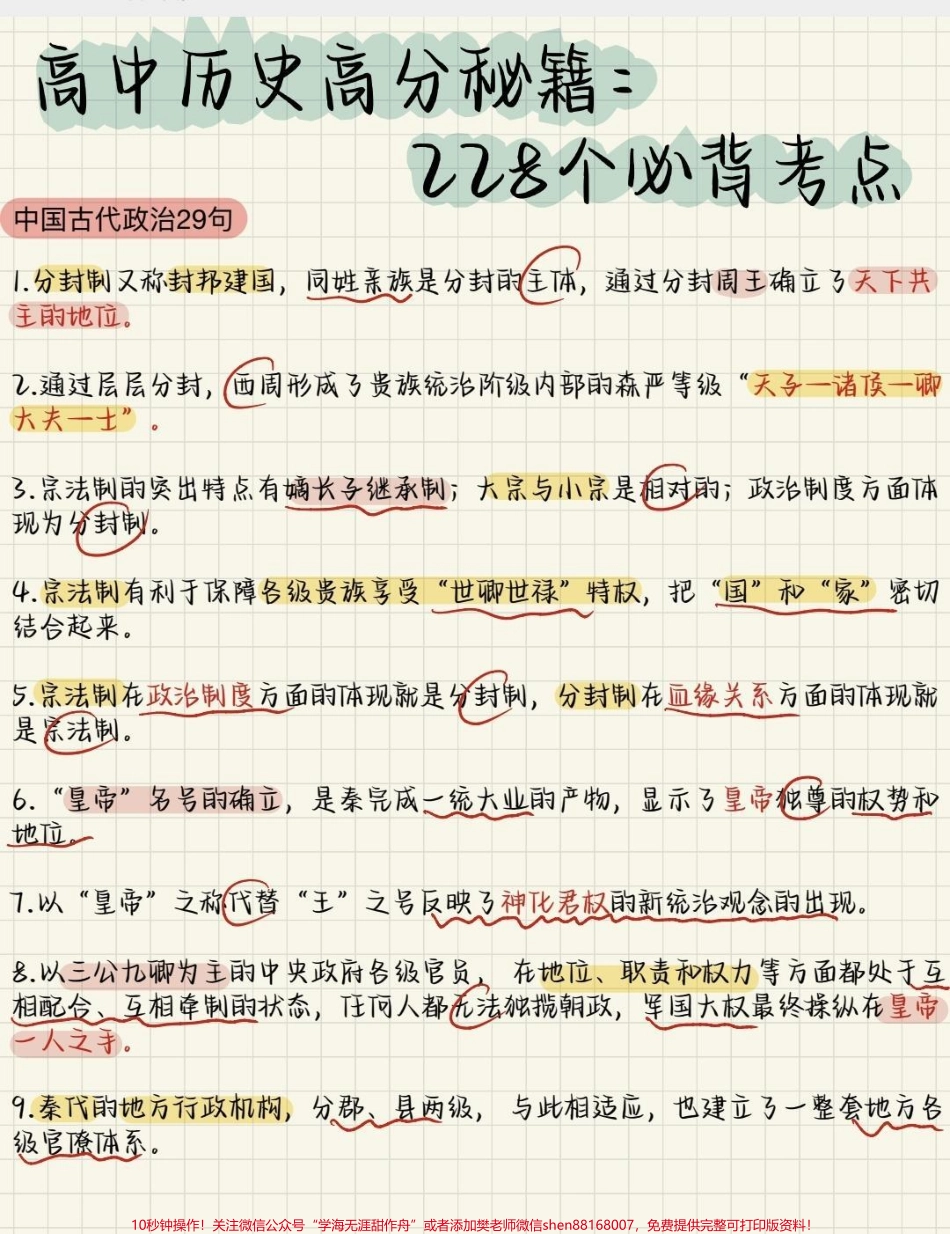 高中历史高分秘籍：
228个必背考点
中国古代政治29句
1.分封制又称封邦建国，同姓亲族是分封的主体，通过分封周王确立了天下共
主的地位。
2.通过层层分封，西周形成了贵族统治阶级内部的森严等级“天子一诸侯一卿
大夫一士”。
3.宗法制的突出特点有嫡长子继承制；大宗与小宗是相对的；政治制度方面体
现为分封制。
4.宗法制有利于保障各级贵族享受“世卿世禄”特权，把“国”和“家”密切
结合起来。
5.宗法制在政治制度方面的体现就是分封制，分封制在血缘关系方面的体现就
是宗法制。
6.“皇帝”名号的确立，是秦完成一统大业的产物，显示了皇帝独尊的权势和
地位。
7.以“皇帝”之称代替“王”之号反映了神化君权的新统治观念的出现。
8.以三公九卿为主的中央政府各级官员，在地位、职责和权力等方面都处于互
相配合、互相牵制的状态，任何人都无法独揽朝政，军国大权最终操纵在皇帝
一人之手。
9.秦代的地方行政机构，分郡、县两级，与此相适应，也建立了一整套地方各
级官僚体系。
10秒钟操作！关注微信公众号“学海无涯甜作舟”或者添加樊老师微信shen88168007，免费提供完整可打印版资料！